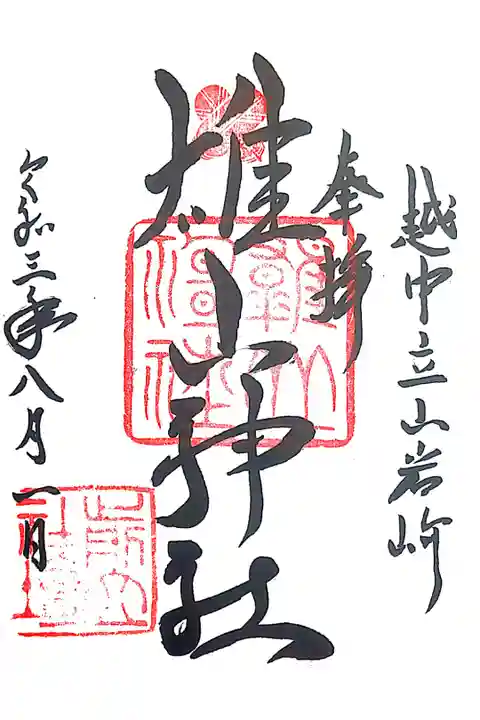 越中立山岩峅
奉拝
雄山神社
令和三年八月一日